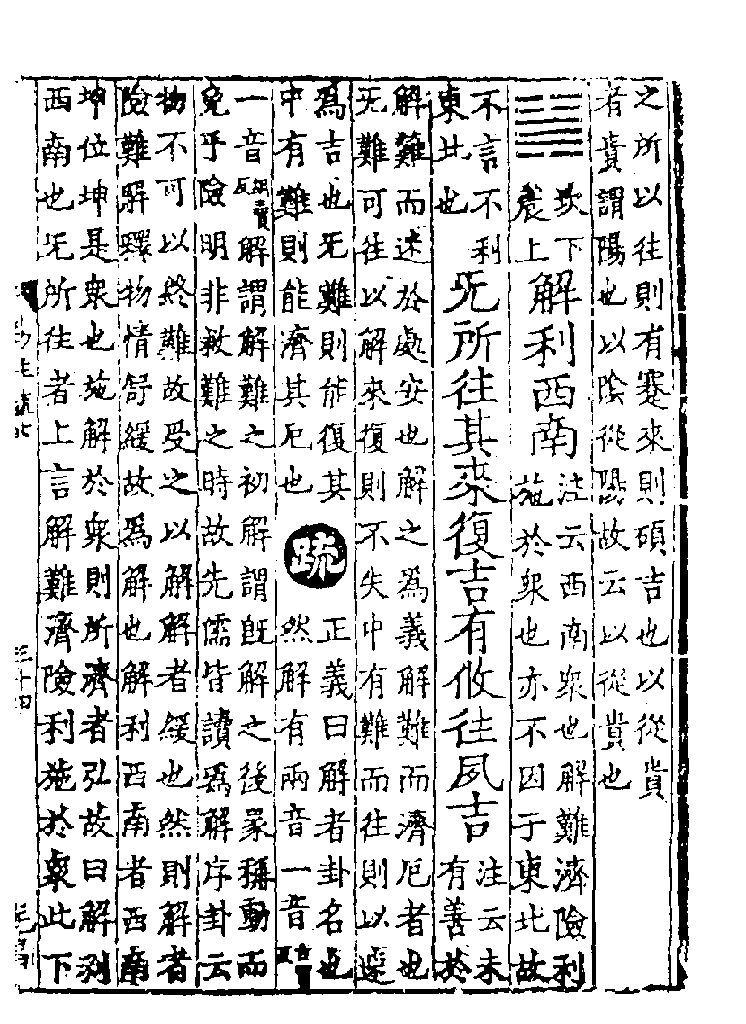 之所以往則有蹇來則碩吉也以從貴
者貴謂陽也以陰從陽故云以從貴也
䷧
坎下
震上
解利西南
注云西南衆也解難濟險利
施於衆也亦不因于東北故
不言不利
東北也
无所往其來復吉有攸往夙吉
注云未
有善於
解難而迷於處安也解之為義解難而濟厄者也
无難可往以解來復則不失中有難而往則以速
為吉也无難則能復其
中有難則能濟其厄也
疏
正義曰解者卦名也
然解有兩音一音古買反
一音胡賣反解謂解難之初解謂旣解之後彖稱動而
免乎險明非救難之時故先儒皆讀爲解序卦云
物不可以終難故受之以解解者緩也然則解者
險難解釋物情舒緩故爲解也解利西南者西南
坤位坤是衆也施解於衆則所濟者弘故曰解利
西南也无所往者上言解難濟險利施於衆此下
三十四